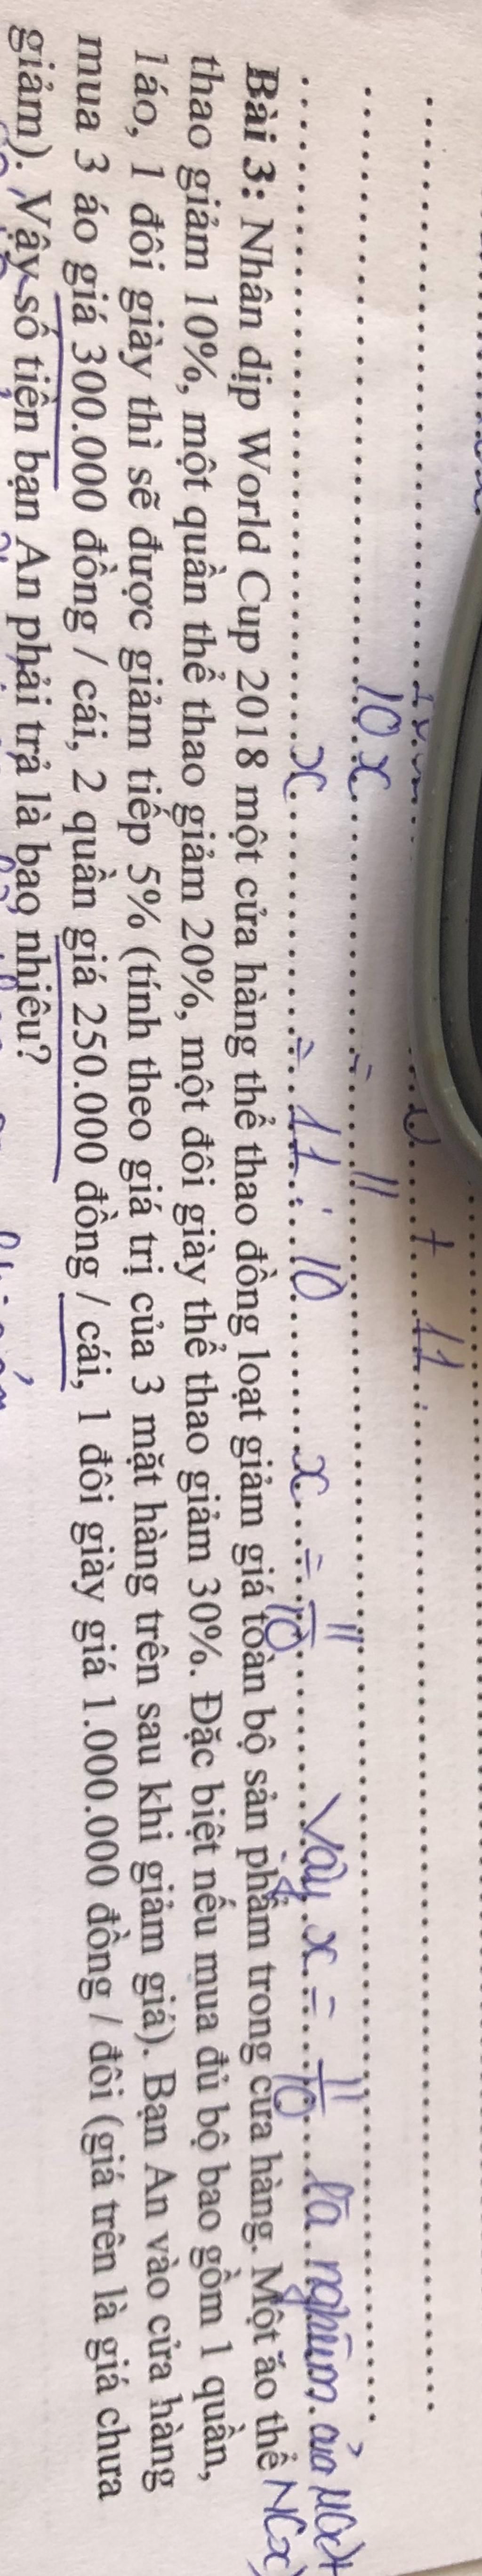 + 11
10x = 11
x = 11 : 10 x = 11/10 Vậy x = 11/10 là nghiệm của
Bài 3: Nhân dịp World Cup 2018 một cửa hàng thể thao đồng loạt giảm giá toàn bộ sản phẩm trong cửa hàng. Một áo thể
thao giảm 10%, một quần thể thao giảm 20%, một đôi giày thể thao giảm 30%. Đặc biệt nếu mua đủ bộ bao gồm 1 quần,
1áo, 1 đôi giày thì sẽ được giảm tiếp 5% (tính theo giá trị của 3 mặt hàng trên sau khi giảm giá). Bạn An vào cửa hàng
mua 3 áo giá 300.000 đồng / cái, 2 quần giá 250.000 đồng / cái, 1 đôi giày giá 1.000.000 đồng / đôi (giá trên là giá chưa
giảm). Vậy số tiền bạn An phải trả là bao nhiêu?